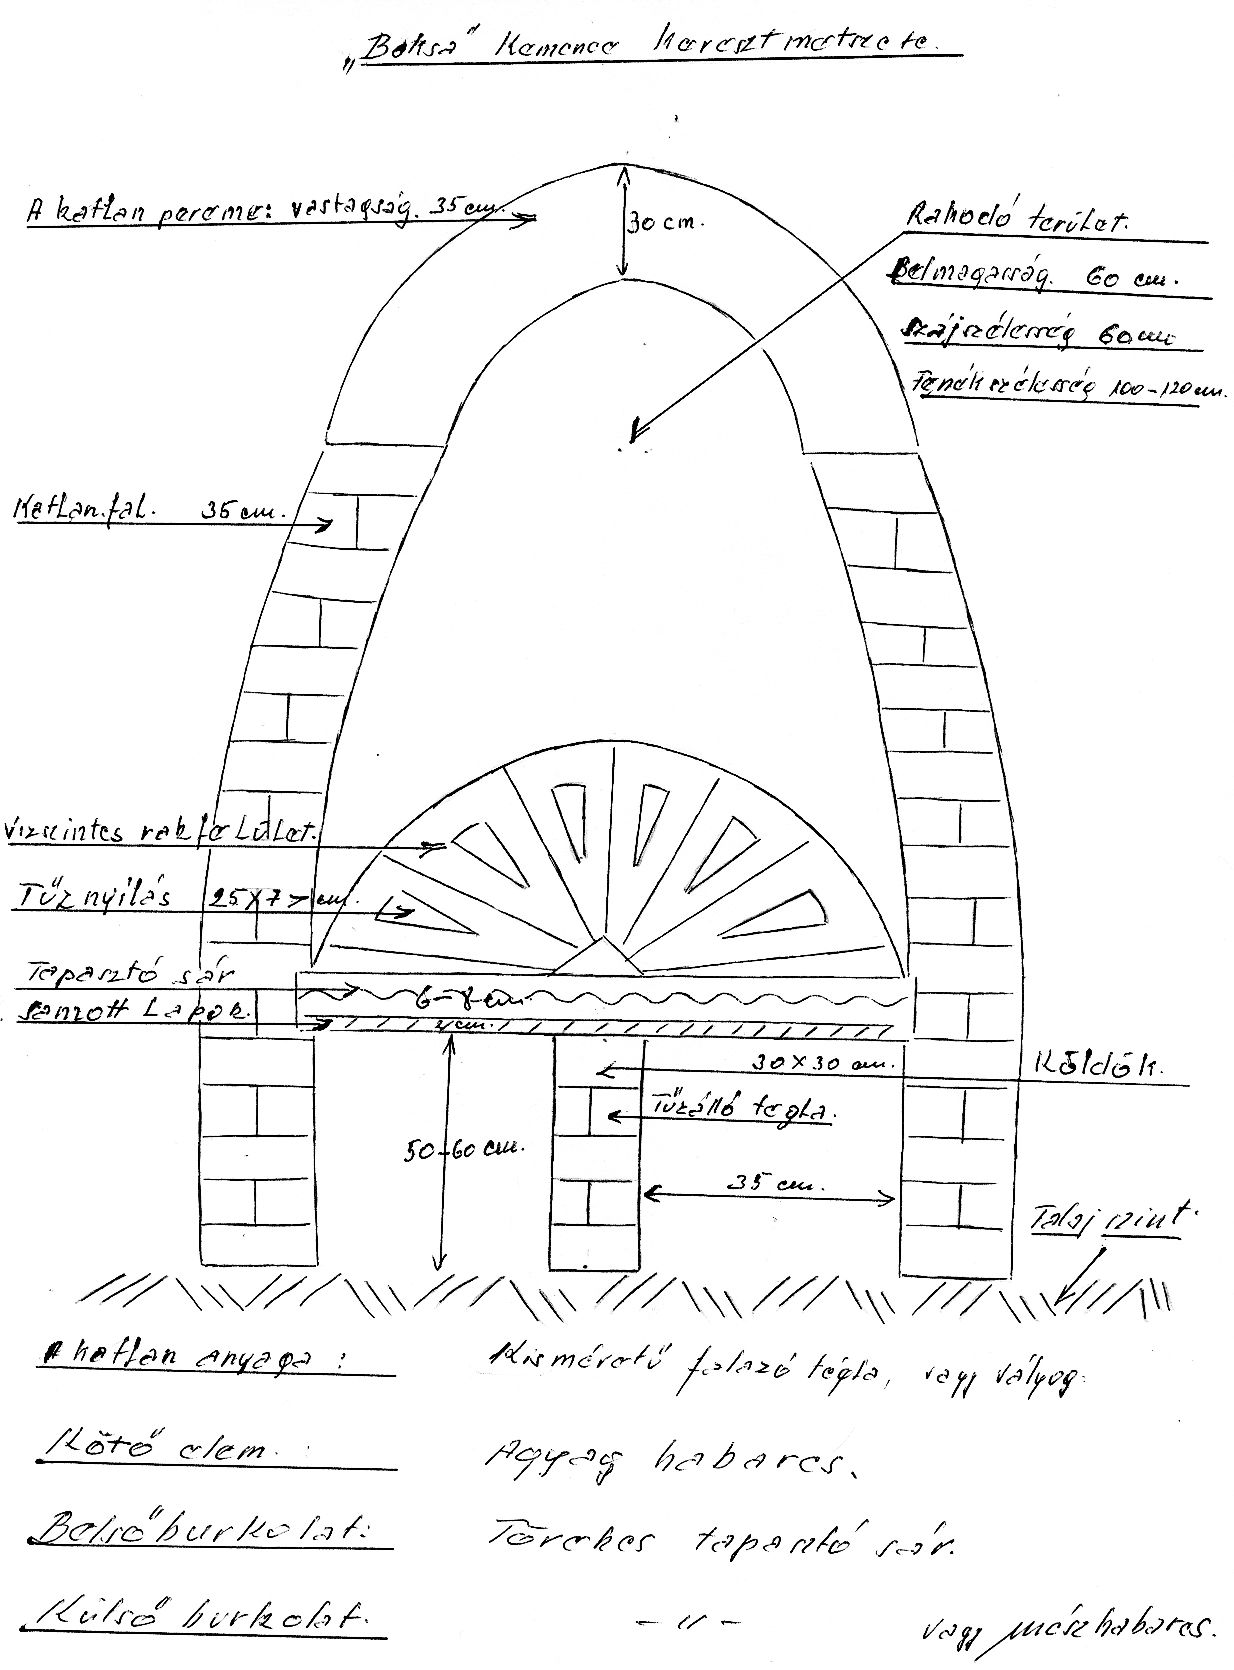 „Boksa" Kemence keresztmetszete.
A katlan pereme: vastagság. 35 cm.
30 cm.
Rakodó terület.
Belmagasság. 60 cm.
szájszélesség 60 cm
Fenékszélesség 100-120 cm.
Katlan.fal. 35 cm.
Vizszintes rakfelület.
Tűznyilás 25X7 cm.
Tapasztó sár
6-8 cm.
samott Lapok.
cm.
30X30 cm.
Köldök.
Tűzálló tegla.
50-60 cm.
35 cm.
Talaj szint.
A katlan anyaga : Kisméretű falazó tégla, vagy vályog.
Kötő elem. Agyag habarcs.
Belső burkolat: Törekes tapasztó sár.
Külső burkolat. - 11 - vagy mészhabarcs.